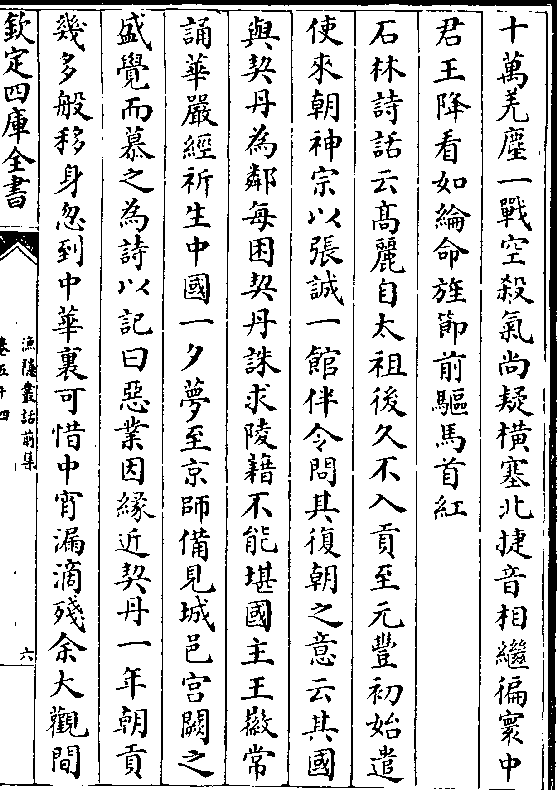 十萬羌塵一戰空殺氣尚疑横塞北捷音相繼徧寰中
君王降看如綸命旌節前驅馬首紅
石林詩話云髙麗自太祖後久不入貢至元豐初始遣
使來朝神宗以張誠一館伴令問其復朝之意云其國
與契丹為鄰每困契丹誅求陵籍不能堪國主王徽常
誦華嚴經祈生中國一夕夢至京師備見城邑宫闕之
盛覺而慕之為詩以記曰惡業因縁近契丹一年朝貢
幾多般移身忽到中華裏可惜中宵漏滴殘余大觀間
欽定四庫全書
漁隱叢話前集
卷五十四
六